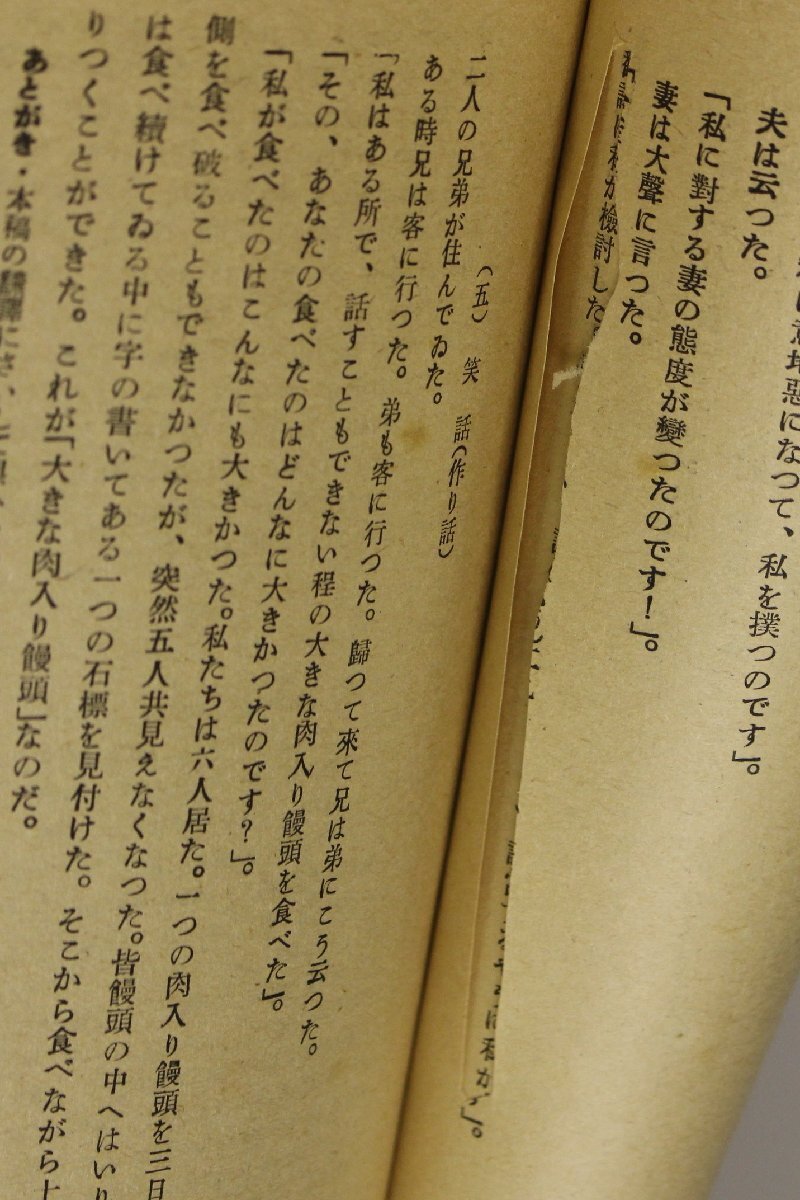 意地惡になつて、私を撲つのです」。
夫は云つた。
「私に對する妻の態度が變つたのです!」。
妻は大聲に言つた。
が檢討した
(五) 笑 話(作り話)
二人の兄弟が住んでゐた。
ある時兄は客に行つた。弟も客に行つた。歸つて來て兄は弟にこう云つた。
「私はある所で、話すこともできない程の大きな肉入り饅頭を食べた」。
「その、あなたの食べたのはどんなに大きかつたのです?」。
「私が食べたのはこんなにも大きかつた。私たちは六人居た。一つの肉入り饅頭を三日
側を食べ破ることもできなかつたが、突然五人共見えなくなつた。皆饅頭の中へはいり
は食べ續けてゐる中に字の書いてある一つの石標を見付けた。そこから食べながら十
りつくことができた。これが「大きな肉入り饅頭」なのだ。
あとがき・本稿の飜譯に